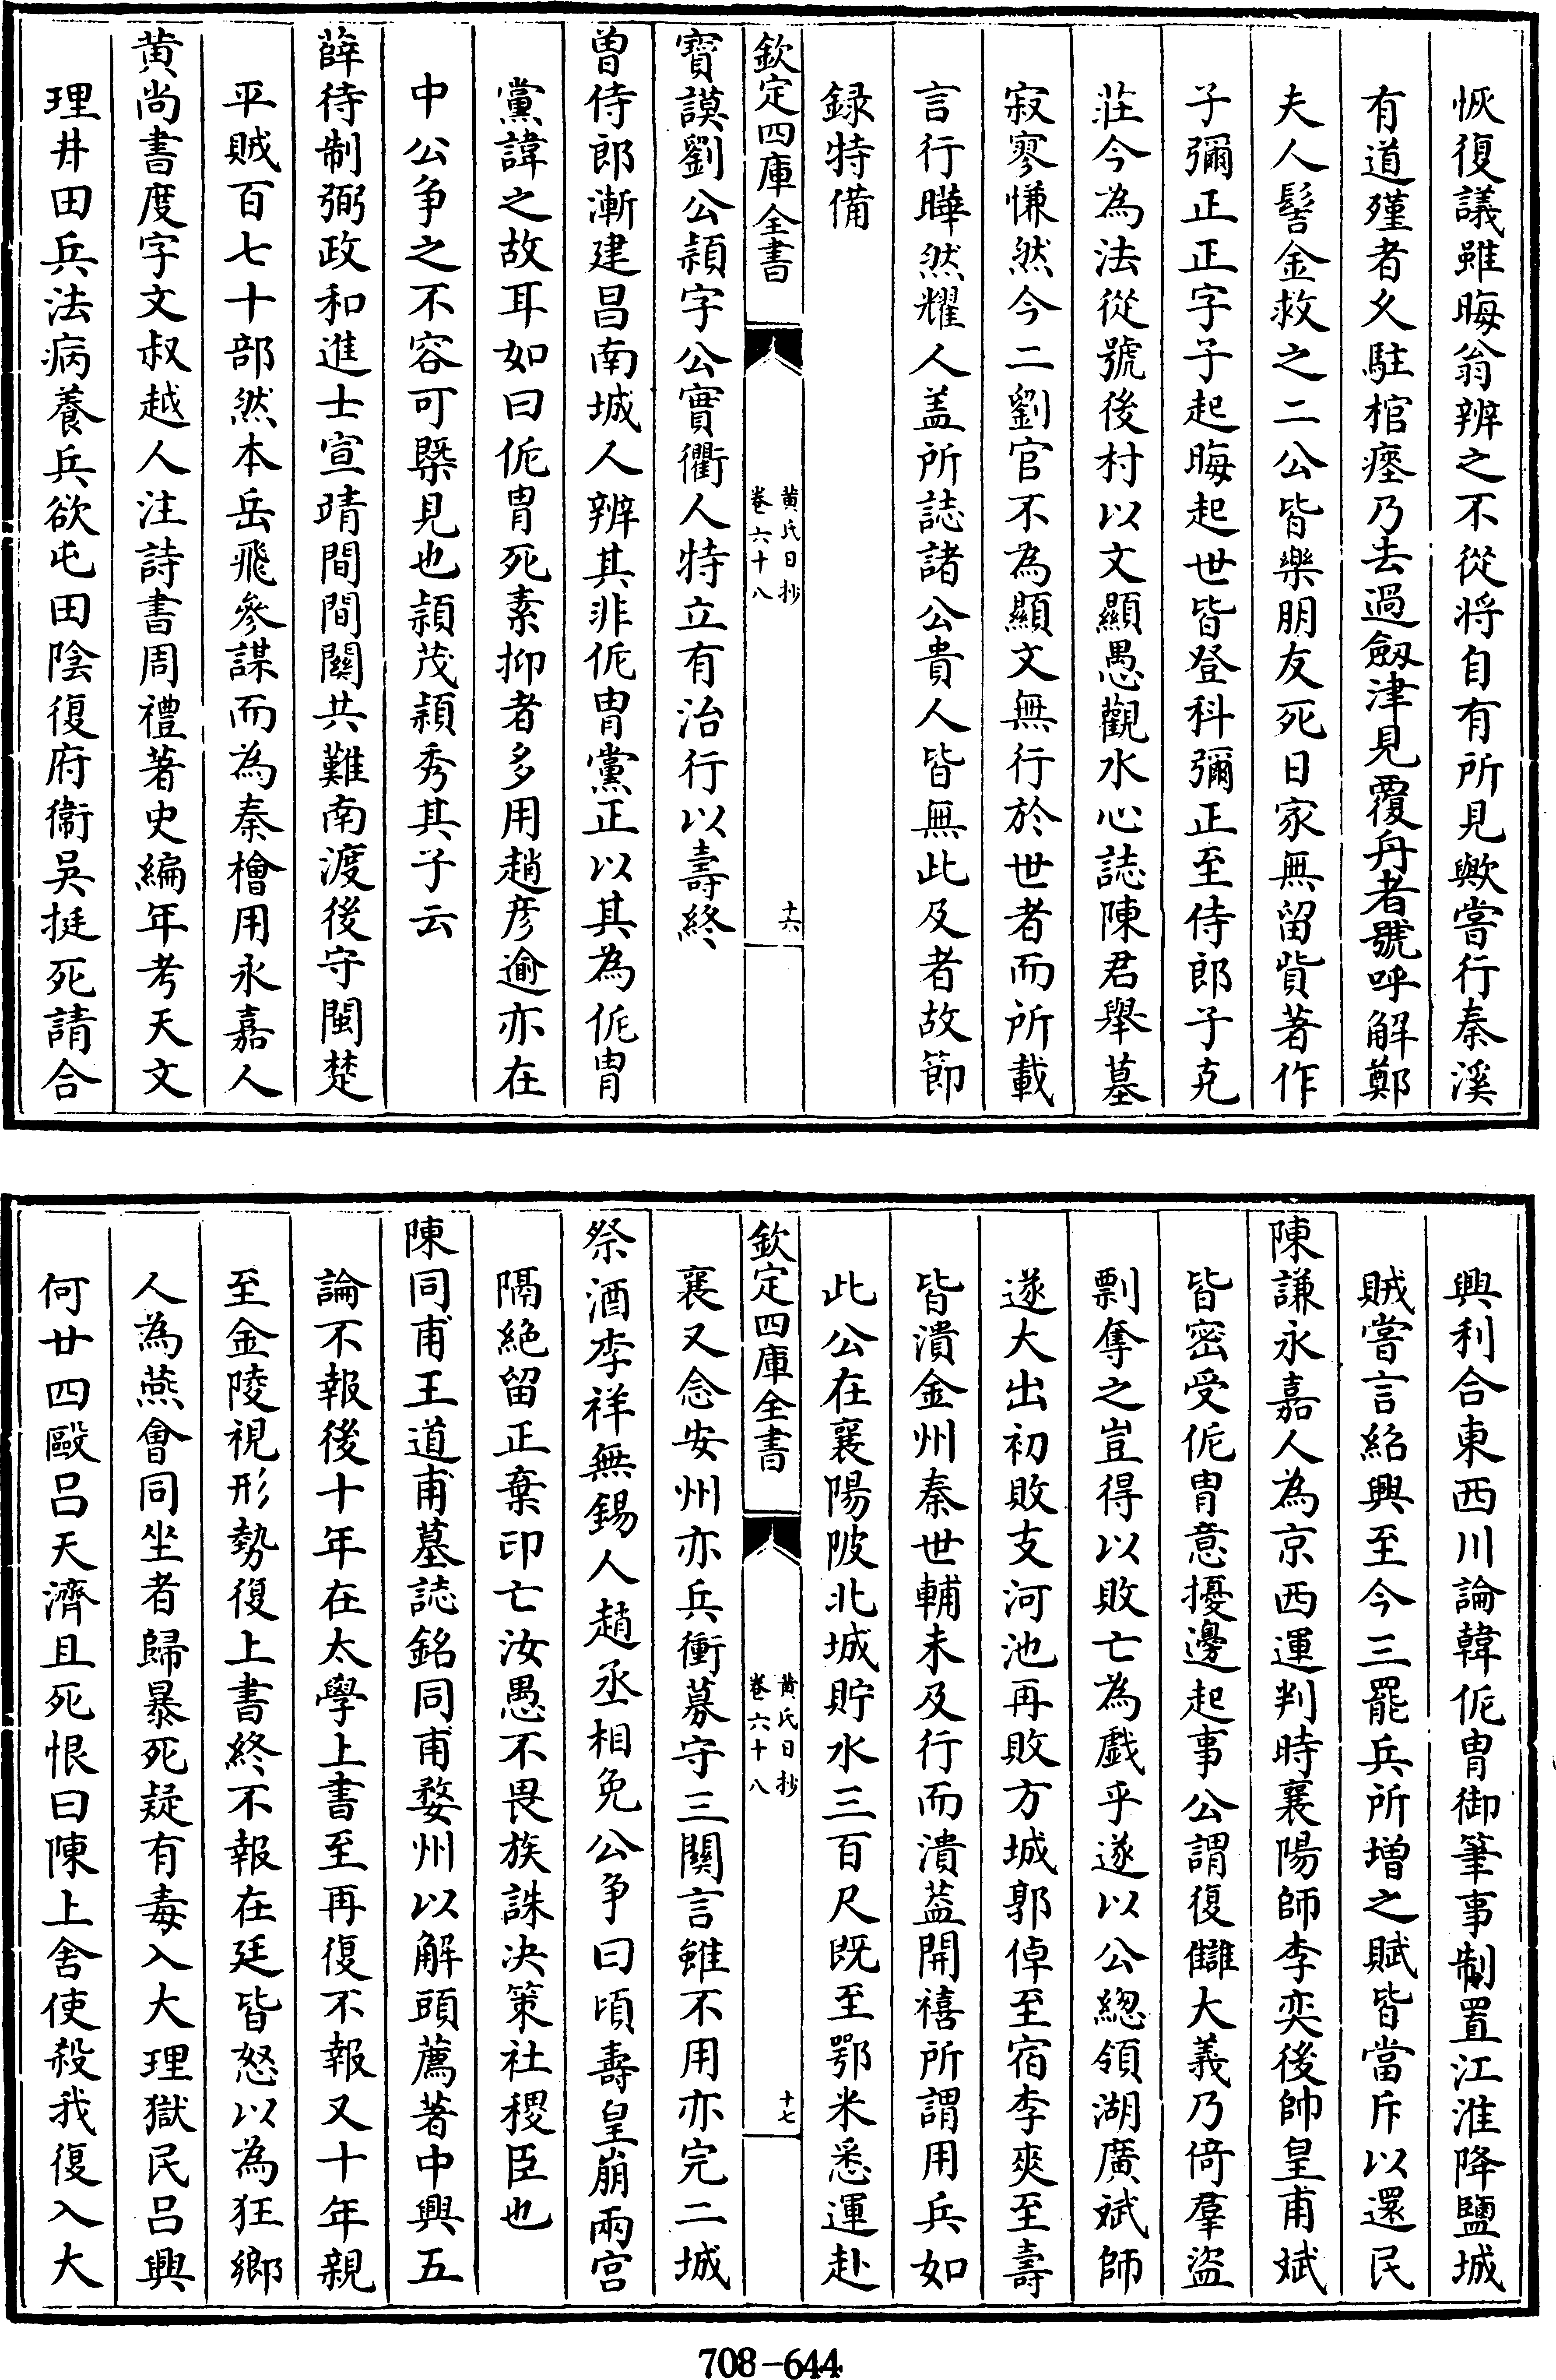 恢復議雖晦翁辨之不從將自有所見歟嘗行秦溪
有道殣者久駐棺瘞乃去過劔津見覆舟者號呼解鄭
夫人髻金救之二公皆樂朋友死日家無留貲著作
子彌正正字子起晦起世皆登科彌正至侍郎子克
莊今為法從號後村以文顯愚觀水心誌陳君舉墓
寂寥慊然今二劉官不為顯文無行於世者而所載
言行曄然耀人盖所誌諸公貴人皆無此及者故節
録特備
欽定四庫全書
黄氏日抄
卷六十八
十六
寳謨劉公頴字公實衢人特立有治行以壽終
曾侍郎漸建昌南城人辨其非侂胄黨正以其為侂胄
黨諱之故耳如曰侂胄死素抑者多用趙彦逾亦在
中公争之不容可槩見也頴茂頴秀其子云
薛待制弼政和進士宣靖間間關共難南渡後守閩楚
平賊百七十部然本岳飛參謀而為秦檜用永嘉人
黄尚書度字文叔越人注詩書周禮著史編年考天文
理井田兵法病養兵欲屯田陰復府衞吳挺死請合
興利合東西川論韓侂胄御筆事制置江淮降鹽城
賊嘗言紹興至今三罷兵所增之賦皆當斥以還民
陳謙永嘉人為京西運判時襄陽師李奕後帥皇甫斌
皆密受侂胄意擾邊起事公謂復讎大義乃倚羣盗
剽奪之豈得以敗亡為戲乎遂以公緫領湖廣斌師
遂大出初敗支河池再敗方城郭倬至宿李爽至壽
皆潰金州秦世輔未及行而潰葢開禧所謂用兵如
此公在襄陽陂北城貯水三百尺既至鄂米悉運赴
欽定四庫全書
黄氏日抄
卷六十八
十七
襄又念安州亦兵衝募守三關言雖不用亦完二城
祭酒李祥無錫人趙丞相免公争曰頃壽皇崩兩宫
隔絶留正棄印亡汝愚不畏族誅决策社稷臣也
陳同甫王道甫墓誌銘同甫婺州以解頭薦著中興五
論不報後十年在太學上書至再復不報又十年親
至金陵視形勢復上書終不報在廷皆怒以為狂鄉
人為燕會同坐者歸暴死疑有毒入大理獄民吕興
何廿四毆吕天濟且死恨曰陳上舍使殺我復入大
708-644